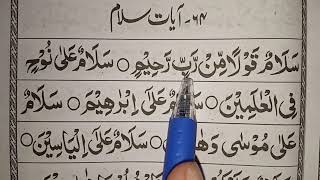 ۶۴۔ آیات سلام
سَلَامٌ قَوْلًا مِّنْ رَّبٍّ رَّحِیْمٍ ○ سَلَامٌ عَلٰی نُوْحٍ
فِی الْعٰلَمِیْنَ ○ سَلَامٌ عَلٰی اِبْرٰهِیْمَ ○ سَلَامٌ
عَلٰی مُوْسٰی وَهٰ سَلَامٌ عَلٰی اِلْیَاسِیْنَ ○